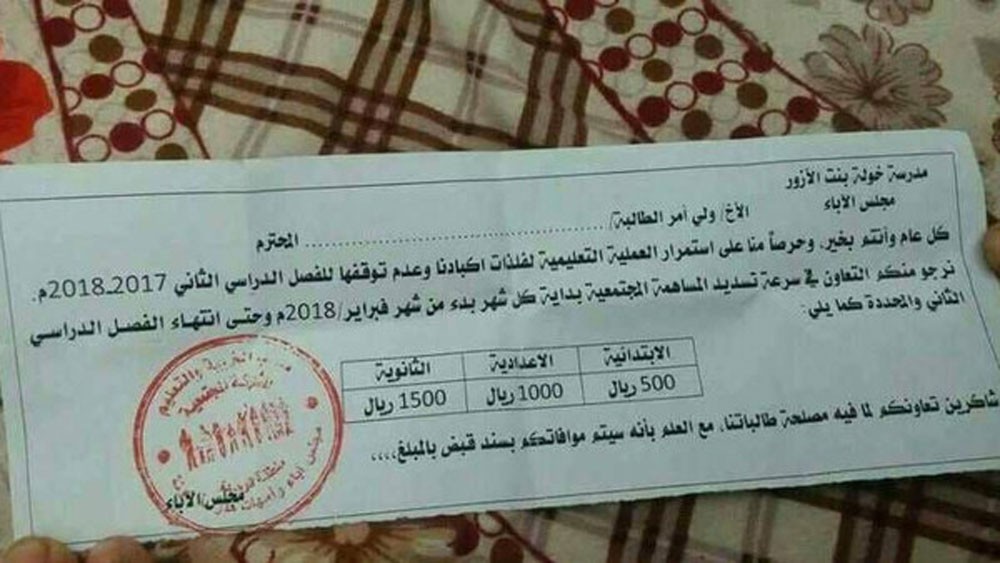 مدرسة خولة بنت الأزور
مجلس الأباء
الأخ/ ولي أمر الطالبة/ ........................................ المحترم
كل عام وأنتم بخير، وحرصاً منا على استمرار العملية التعليمية لفلذات اكبادنا وعدم توقفها للفصل الدراسي الثاني 2017ـ2018م.
نرجو منكم التعاون في سرعة تسديد المساهمة المجتمعية بداية كل شهر بدء من شهر فبراير/2018م وحتى انتهاء الفصل الدراسي
الثاني والمحددة كما يلي:
الابتدائية الاعدادية الثانوية
500 ريال 1000 ريال 1500 ريال
شاكرين تعاونكم لما فيه مصلحة طالباتنا، مع العلم بأنه سيتم موافاتكم بسند قبض بالمبلغ،،،،
مجلس الأباء
والتعليم
المجتمعية
مجلس آباء وأمهات